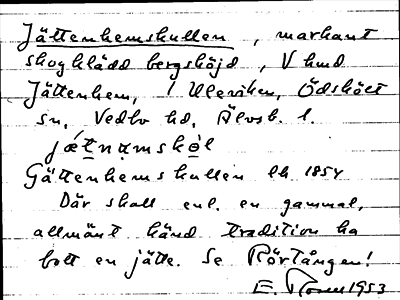 Jättenhemskullen, markant
skogklädd bergshöjd, V hmd
Jättenhem, i Uleviken, Ödskölt
sn, Vedbo hd, Älvsb. l.
jǽtnəmskòl
Gättenhemskullen lk. 1854
Där skall enl. en gammal,
allmänt känd tradition ha
bott en jätte. Se Rörtången!
E. 1953